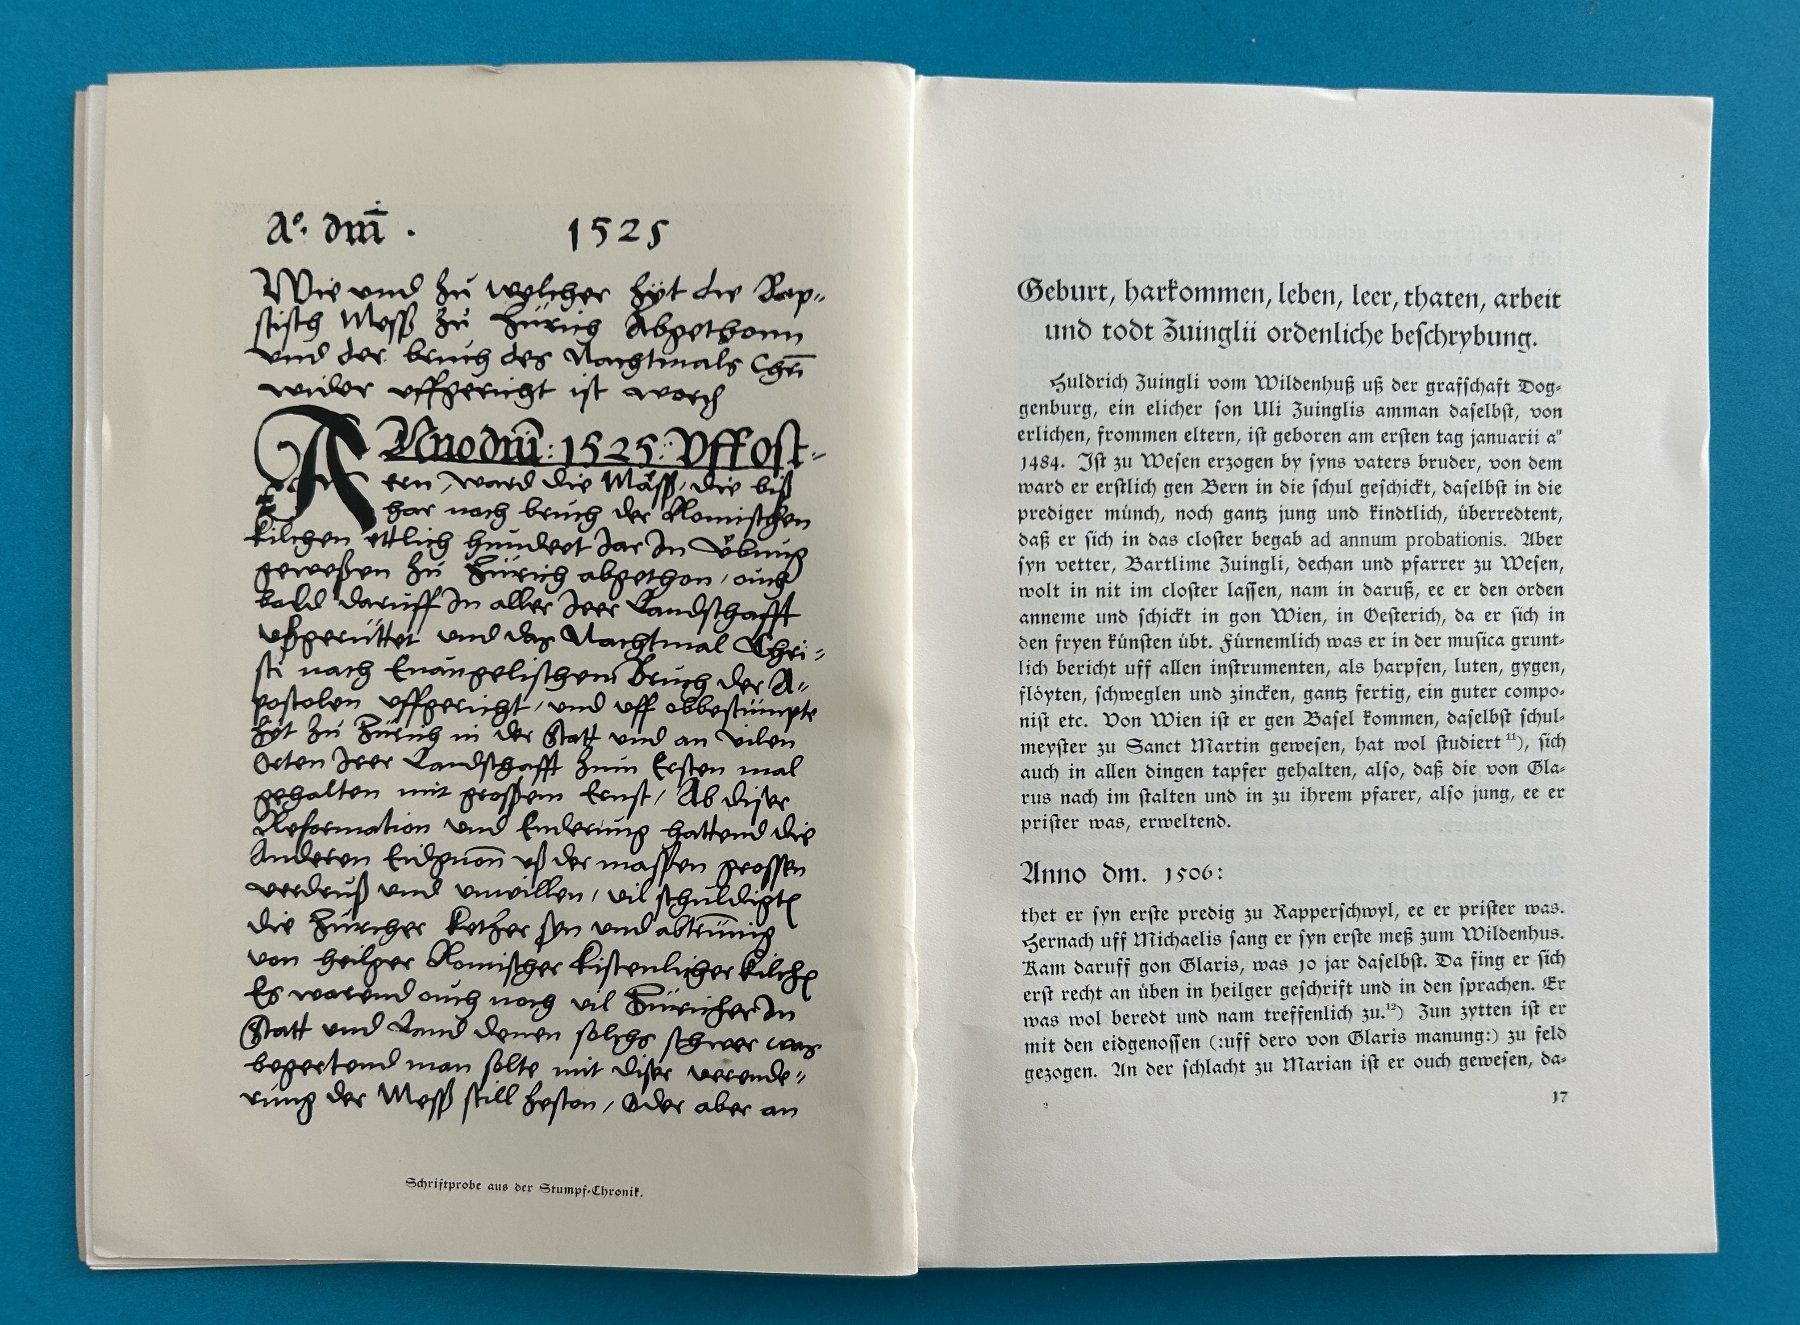 Aº. dm̄i. 1525
Wie und zu welcher zyt die Bap-
stisch Mesß zů Zürich Abgethonn
vnd der bruch des Nachtmals Chr̄i
wider vffgericht ist word
ANno dm̄i: 1525: Vff ost-
ern, ward die Mäsß, die biß
har nach bruch der Romischen
kilchen ettlich hundert Jar In Übung
geweßen zů Zürich abgethon, ouch
bald daruff In aller Irer Landschafft
vßgerüttet vnd das Nachtmal Chri-
sti nach Euangelischem Bruch der A-
postolen vffgericht, vnd vff obbestümpte
zyt zů Zürich in der Statt vnd an vilen
Orten Irer Landschafft zum Ersten mal
gehalten mit grossem Ernst, Ab diser
Reformation vnd Enderung hattend die
Anderen Eidgnon̄ vß der massen grossen
verdruß vnd vnwillen, vil schuldigt
die Zürcher ketzer syn vnd abtrünnig
von heilger Romischer kilch
Es warend ouch noch vil Züricher In
Statt vnd Land denen solchs schwer was
begertend man solte mit diser verende-
rung der Mesß still, Oder aber an
Schriftprobe aus der Stumpf-Chronik.
Geburt, harkommen, leben, leer, thaten, arbeit
und todt Zuinglii ordenliche beschrybung.
Huldrich Zuingli vom Wildenhuß uß der grafschaft Dog-
genburg, ein elicher son Uli Zuinglis amman daselbst, von
erlichen, frommen eltern, ist geboren am ersten tag januarii a°
1484. Ist zu Wesen erzogen by syns vaters bruder, von dem
ward er erstlich gen Bern in die schul geschickt, daselbst in die
prediger münch, noch gantz jung und kindtlich, überredtent,
daß er sich in das closter begab ad annum probationis. Aber
syn vetter, Bartlime Zuingli, dechan und pfarrer zu Wesen,
wolt in nit im closter lassen, nam in daruß, ee er den orden
anneme und schickt in gon Wien, in Oesterich, da er sich in
den fryen künsten übt. Fürnemlich was er in der musica grunt-
lich bericht uff allen instrumenten, als harpfen, luten, gygen,
flöyten, schweglen und zincken, gantz fertig, ein guter compo-
nist etc. Von Wien ist er gen Basel kommen, daselbst schul-
meyster zu Sanct Martin gewesen, hat wol studiert ¹¹), sich
auch in allen dingen tapfer gehalten, also, daß die von Gla-
rus nach im stalten und in zu ihrem pfarer, also jung, ee er
prister was, erweltend.
Anno dm. 1506:
thet er syn erste predig zu Rapperschwyl, ee er prister was.
Hernach uff Michaelis sang er syn erste meß zum Wildenhus.
Kam daruff gon Glaris, was 10 jar daselbst. Da fing er sich
erst recht an üben in heilger geschrift und in den sprachen. Er
was wol beredt und nam treffenlich zu.¹²) Zun zytten ist er
mit den eidgenossen (:uff dero von Glaris manung:) zu feld
gezogen. An der schlacht zu Marian ist er ouch gewesen, da-
17